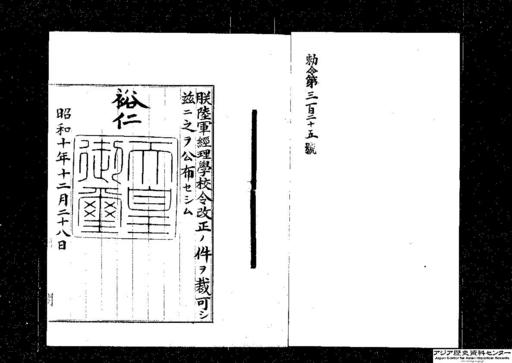 勅令第三百二十五號
朕陸軍經理學校令改正ノ件ヲ裁可シ
茲ニ之ヲ公布セシム
裕仁
天皇
御璽
昭和十年十二月二十八日
アジア歴史資料センター
Japan Center for Asian Historical Records